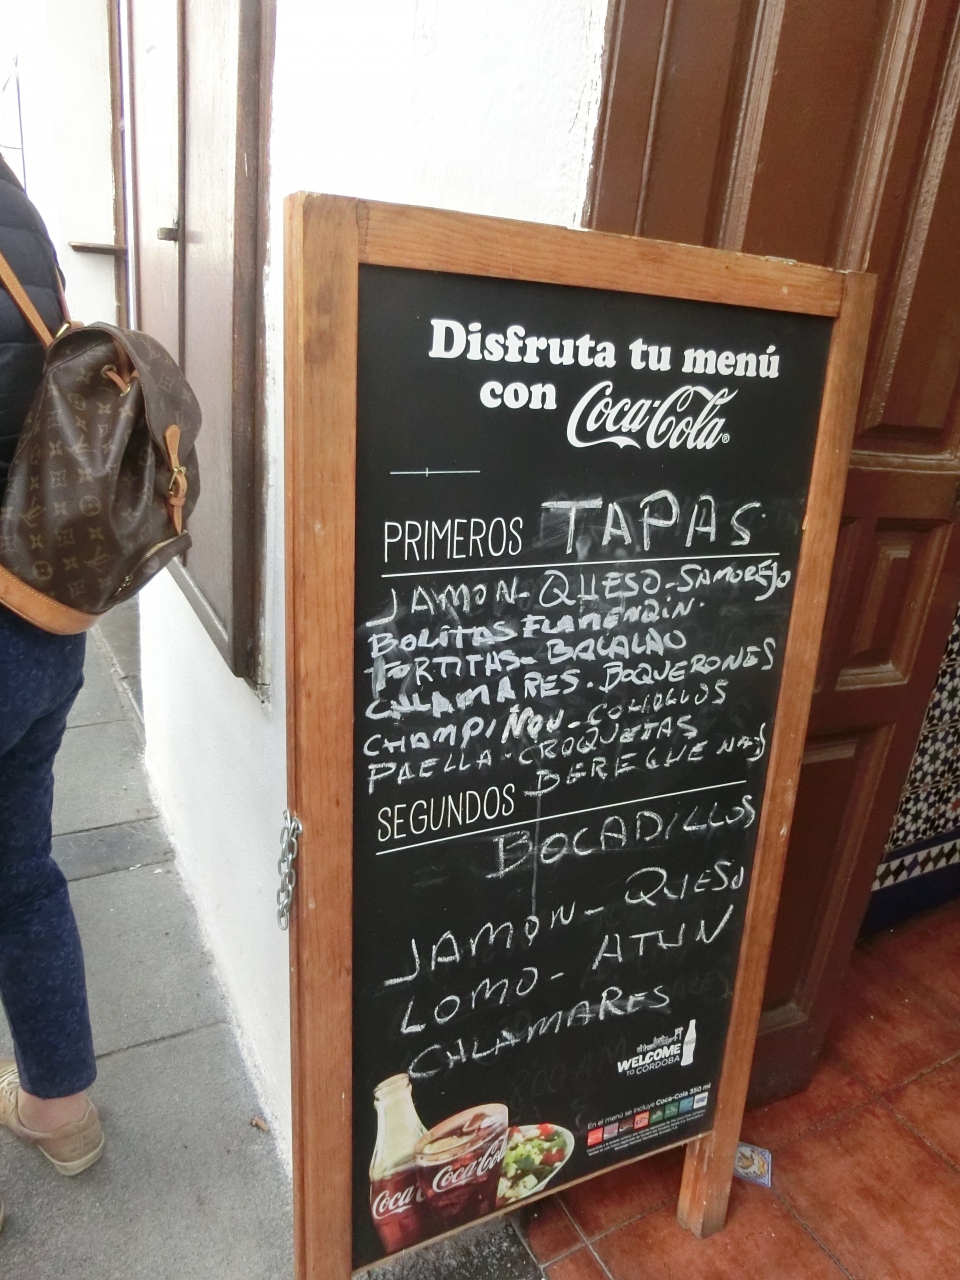 Disfruta tu menú
con Coca-Cola®
PRIMEROS TAPAS
JAMON-QUESO-SAMOREJO
BOLITAS FLAMENQIN.
TORTITAS-BACALAO
CALAMARES.BOQUERONES
CHAMPIÑON-COHOLLOS
PAELLA-CROQUETAS
BEREGUENAS
SEGUNDOS
BOCADILLOS
JAMON-QUESO
LOMO-ATUN
CALAMARES
WELCOME
TO CÓRDOBA
En el menú se incluye Coca-Cola 350 ml
Coca-Cola
Coca